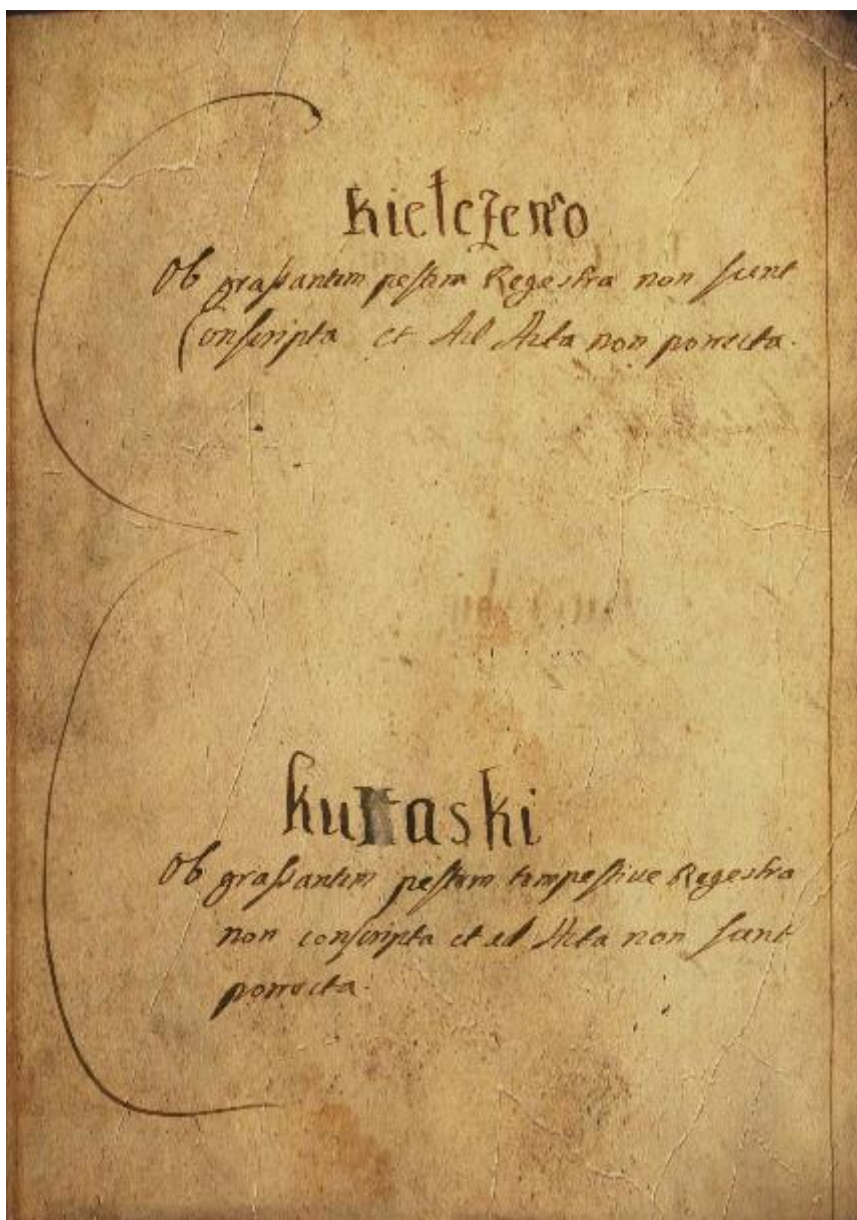 Kiełczewo
Ob grassantem pestem Regestra non sunt
Conscripta et Ad Acta non porrecta.
Ob grassantem pestem tempestive Regestra
non conscripta et ad Acta non sunt
porrecta.